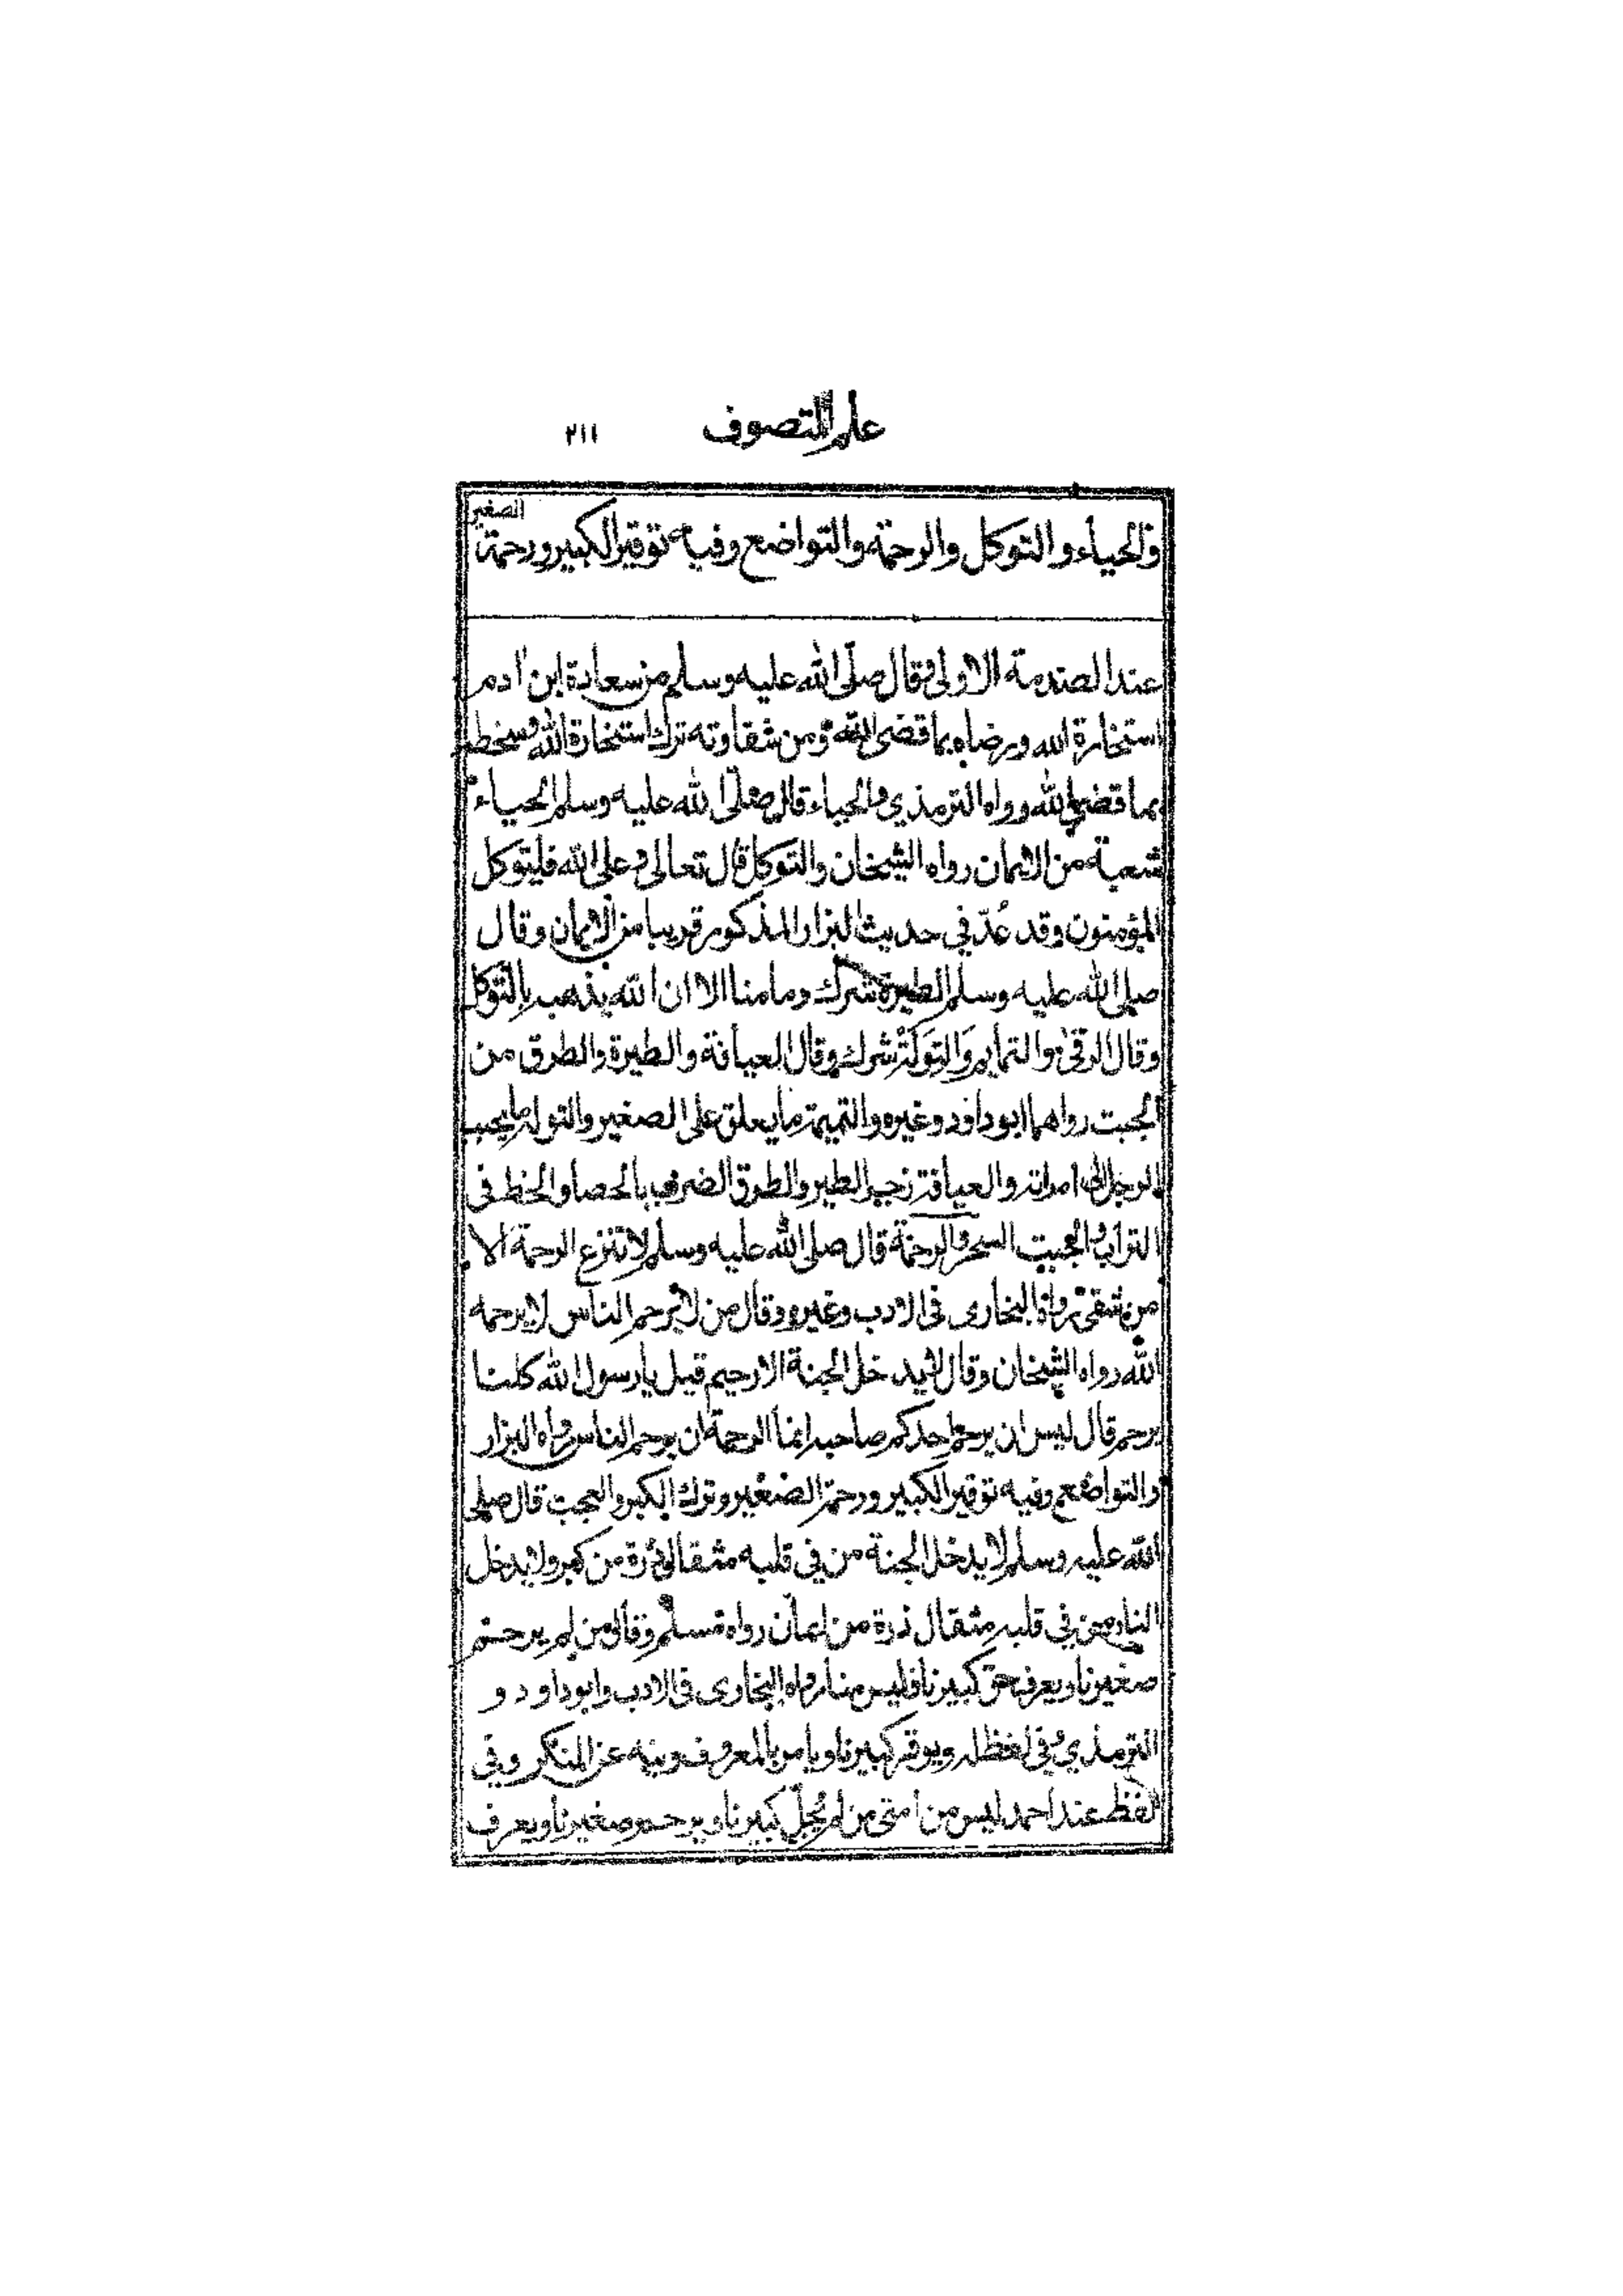 علم التصوف ٢١١
والحياء والتوكل والرحمة والتواضع وفيه توقير الكبير ورحمة الصغير
عند الصدمة الاولى وقال صلى الله عليه وسلم من سعادة ابن ادم
استخارة الله ورضاه بما قضى الله ومن شقاوته ترك استخارة الله وسخطه
بما قضى الله رواه الترمذي والحياء قال صلى الله عليه وسلم الحياء
شعبة من الايمان رواه الشيخان والتوكل قال تعالى وعلى الله فليتوكل
المؤمنون وقد عُدّ في حديث البزار المذكور قريبا من الايمان وقال
صلى الله عليه وسلم الطيرة شرك وما منا الا ان الله يذهبه بالتوكل
وقال الرقى والتمايم والتِوَلَة شرك وقال العيافة والطيرة والطرق من
الجبت رواهما ابو داود وغيره والتميمة ما يعلق على الصغير والتولة ما يحبب
الرجل الى امراته والعيافة زجر الطير والطرق الضرب بالحصا والخط في
التراب والجبت السحر والرحمة قال صلى الله عليه وسلم لا تنزع الرحمة الا
من شقي رواه البخارى في الادب وغيره وقال من لا يرحم الناس لا يرحمه
الله رواه الشيخان وقال لا يدخل الجنة الا رحيم قيل يا رسول الله كلنا
يرحم قال ليس ان يرحم احدكم صاحبه انما الرحمة ان يرحم الناس رواه البزار
والتواضع وفيه توقير الكبير ورحمة الصغير وترك الكبر والعجب قال صلى
الله عليه وسلم لا يدخل الجنة من في قلبه مثقال ذرة من كبر ولا يدخل
النار من في قلبه مثقال ذرة من ايمان رواه مسلم وقال من لم يرحم
صغيرنا ويعرف حق كبيرنا فليس منا رواه البخارى في الادب وابو داود و
الترمذي وفي لفظ له ويوقر كبيرنا ويامر بالمعروف وينه عن المنكر وفي
لفظ عند احمد ليس من امتي من لم يُجِلّ كبيرنا ويرحم صغيرنا ويعرف